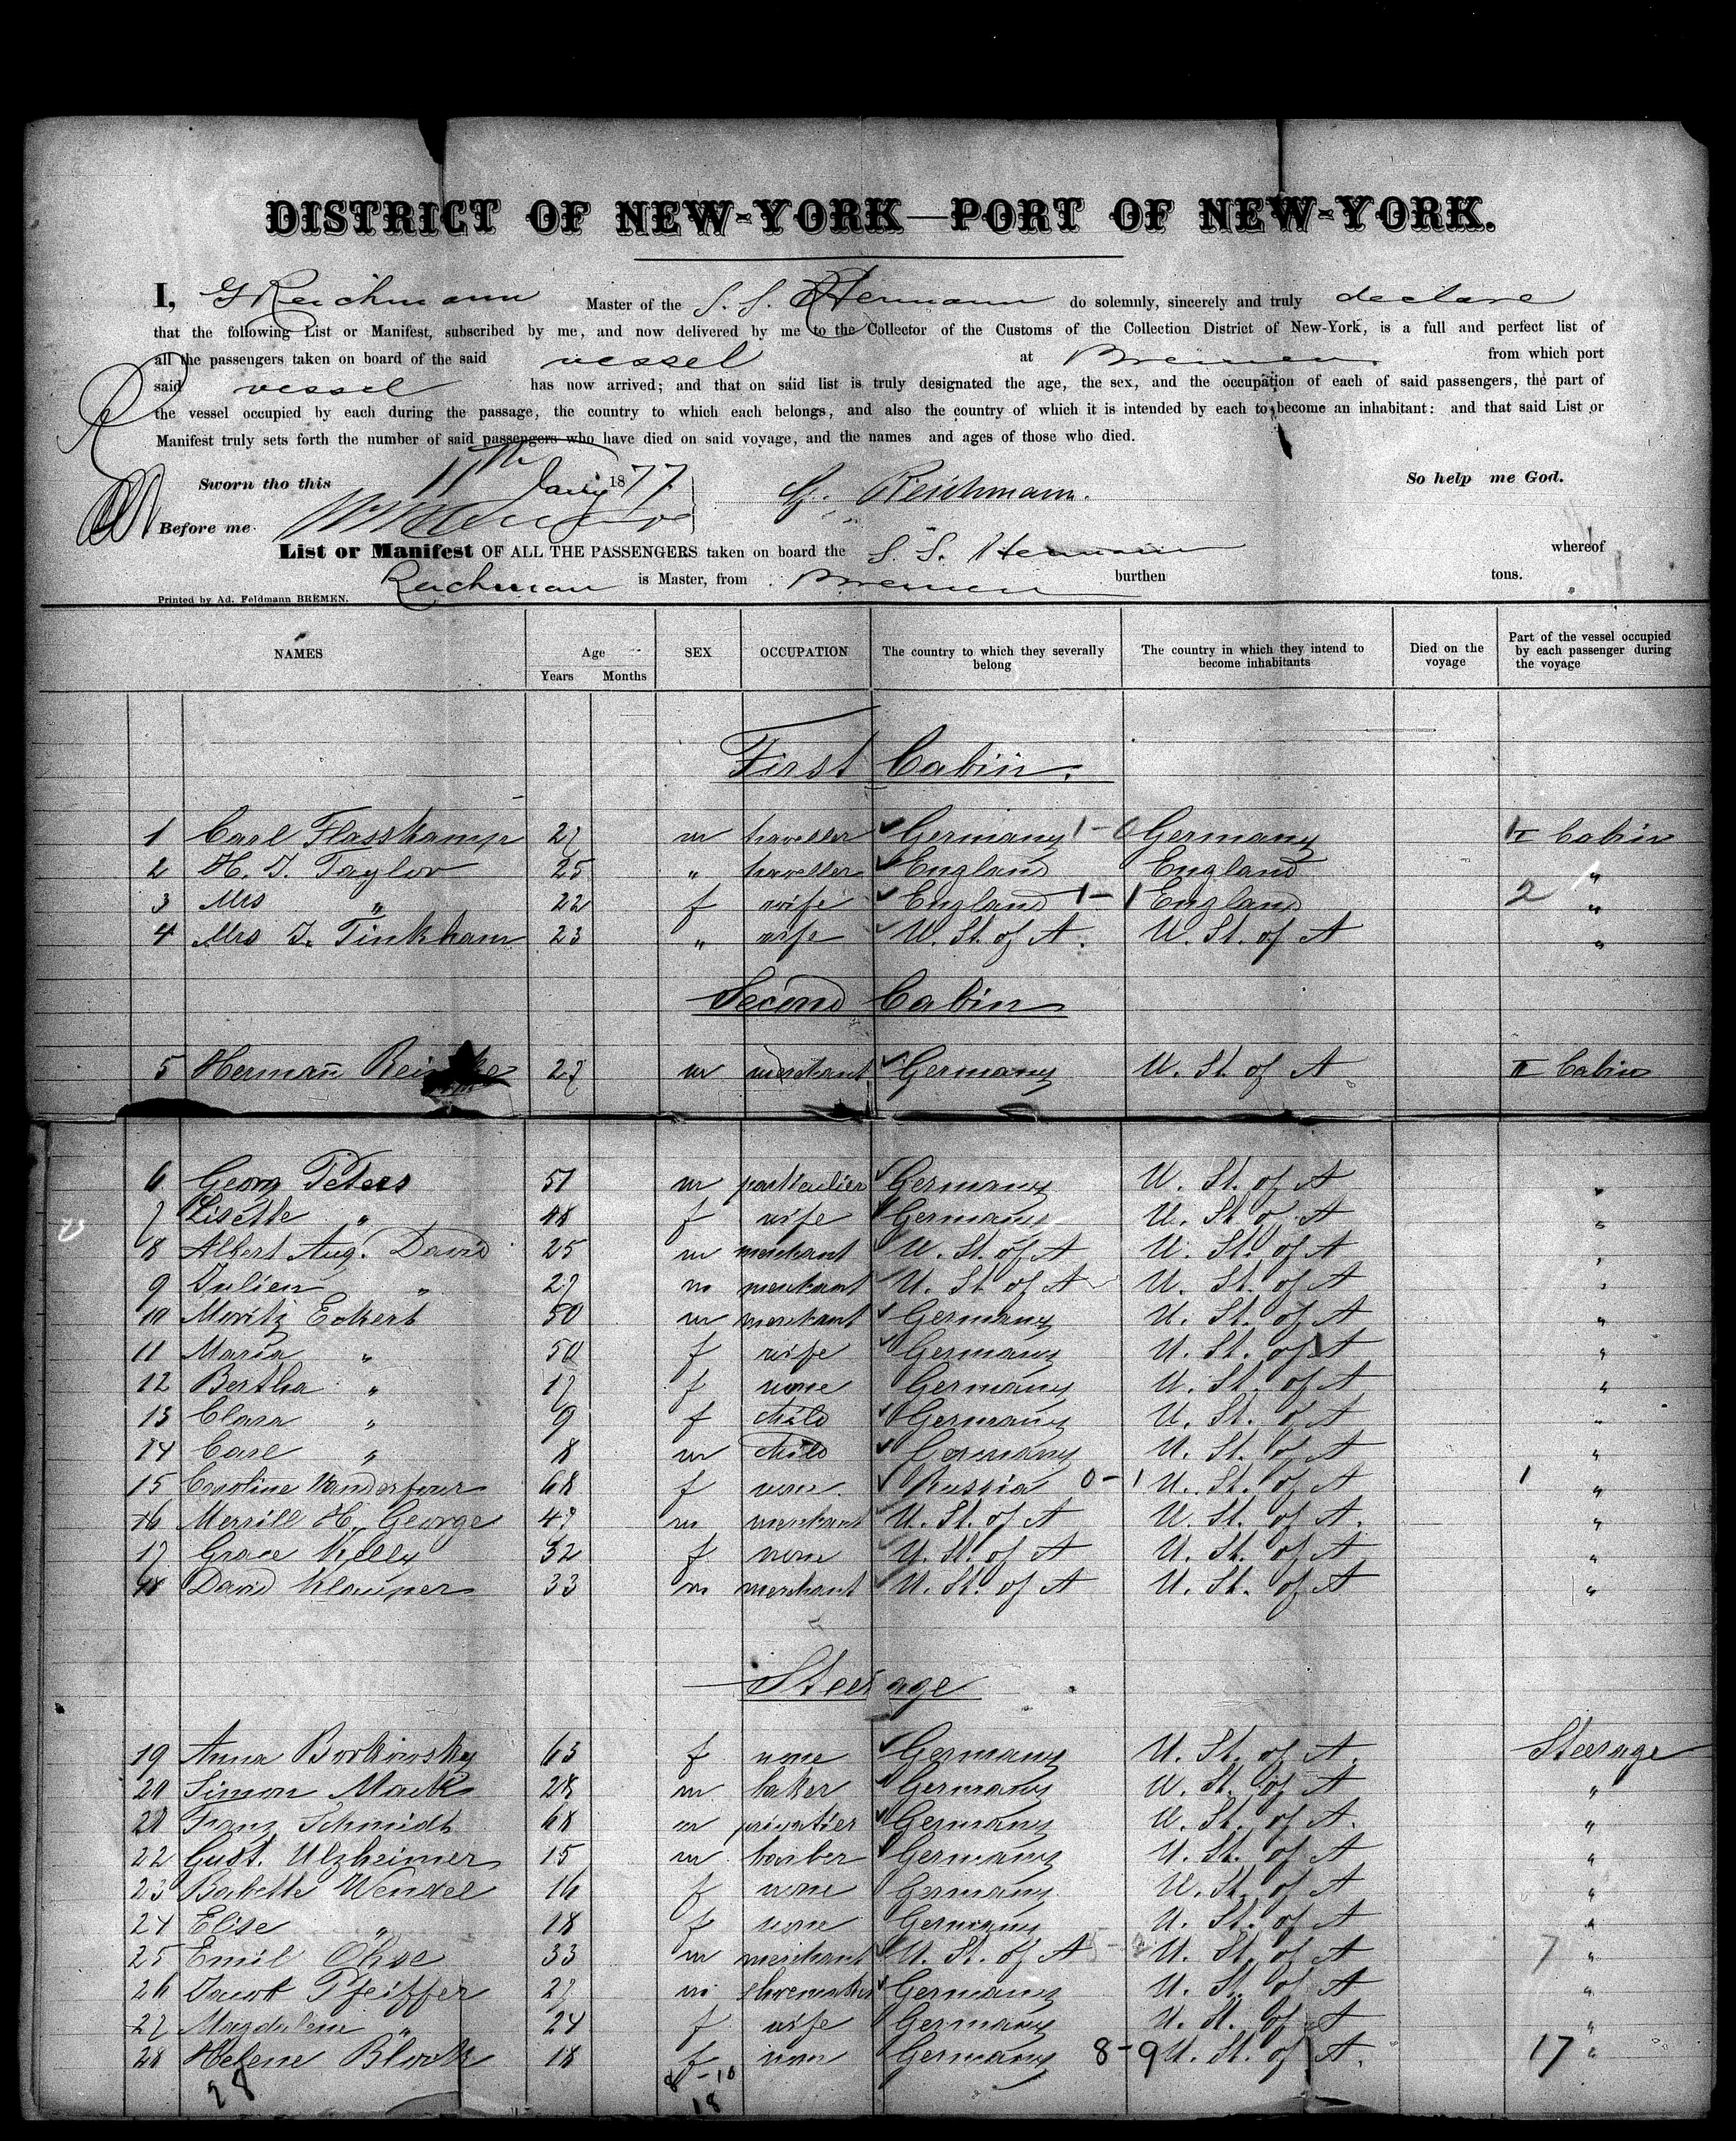 DISTRICT OF NEW-YORK—PORT OF NEW-YORK.
I, G Reichmann Master of the S. S. Hermann do solemnly, sincerely and truly declare
that the following List or Manifest, subscribed by me, and now delivered by me to the Collector of the Customs of the Collection District of New-York, is a full and perfect list of
all the passengers taken on board of the said vessel at Bremen from which port
said vessel has now arrived; and that on said list is truly designated the age, the sex, and the occupation of each of said passengers, the part of
the vessel occupied by each during the passage, the country to which each belongs, and also the country of which it is intended by each to become an inhabitant: and that said List or
Manifest truly sets forth the number of said passengers who have died on said voyage, and the names and ages of those who died.
Sworn tho this 11th Jany 1877 G. Reichmann. So help me God.
Before me
List or Manifest OF ALL THE PASSENGERS taken on board the S. S. Hermann whereof
Reichman is Master, from Bremen burthen tons.
Printed by Ad. Feldmann BREMEN.
NAMES Age Years Months SEX OCCUPATION The country to which they severally belong The country in which they intend to become inhabitants Died on the voyage Part of the vessel occupied by each passenger during the voyage
First Cabin.
1 Carl Flasskamp 27 m traveller Germany 1-0 Germany I Cabin
2 H. J. Taylor 25 " traveller England England "
3 Mrs " 22 f wife England 1-1 England 2 "
4 Mrs J. Tinkham 23 " wife U. St. of A. U. St. of A "
Second Cabin
5 Hermann 27 m merchant Germany U. St. of A II Cabin
6 Georg Peters 51 m particulier Germany U. St. of A "
7 Lisette " 48 f wife Germany U. St. of A "
8 Albert Aug. David 25 m merchant U. St. of A U. St. of A "
9 Julien " 27 m merchant U. St. of A U. St. of A "
10 Moritz Eckert 50 m merchant Germany U. St. of A "
11 Maria " 50 f wife Germany U. St. of A "
12 Bertha " 17 f none Germany U. St. of A "
13 Clara " 9 f child Germany U. St. of A "
14 Carl " 8 m child Germany U. St. of A "
15 Caroline 68 f none Russia 0-1 U. St. of A 1 "
16 Merrill H. George 47 m merchant U. St. of A U. St. of A. "
17 Grace Kelly 32 f none U. St. of A U. St. of A "
18 David Klauper 33 m merchant U. St. of A U. St. of A "
Steerage
19 Anna Borkowsky 63 f none Germany U. St. of A. Steerage
20 Simon Mack 28 m baker Germany U. St. of A "
21 Franz Schmidt 68 m privatier Germany U. St. of A. "
22 Gust. Ulzheimer 15 m barber Germany U. St. of A "
23 Babette Wenzel 16 f none Germany U. St. of A "
24 Elise " 18 f none Germany U. St. of A "
25 Emil Ohse 33 m merchant U. St. of A U. St. of A 7 "
26 Jacob Pfeiffer 27 m shoemaker Germany U. St. of A "
27 Magdalena " 24 f wife Germany U. St. of A "
28 Helene Block 18 f none Germany 8-9 U. St. of A. 17 "
28 8-10
18